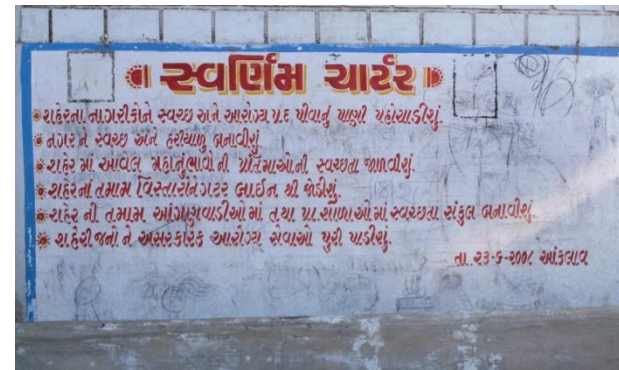 સ્વર્ણિમ ચાર્ટર
શહેરના નાગરીકોને સ્વચ્છ અને આરોગ્ય પ્રદ પીવાનું પાણી પહોચાડીશું.
નગર ને સ્વચ્છ અને હરીયાળુ બનાવીશું.
શહેર માં આવેલ મહાનુંભાવો ની પ્રતિમાઓ ની સ્વચ્છતા જાળવીશું.
શહેરનાં તમામ વિસ્તારોને ગટર લાઈન થી જોડીશું.
શહેર ની તમામ આંગણવાડીઓ માં તથા પ્રા.શાળાઓ માં સ્વચ્છતા સંકુલ બનાવીશું.
શહેરી જનો ને અસરકારક આરોગ્ય સેવાઓ પુરી પાડીશું.
તા. ૨૩-૬-૨૦૦૮ આંકલાવ